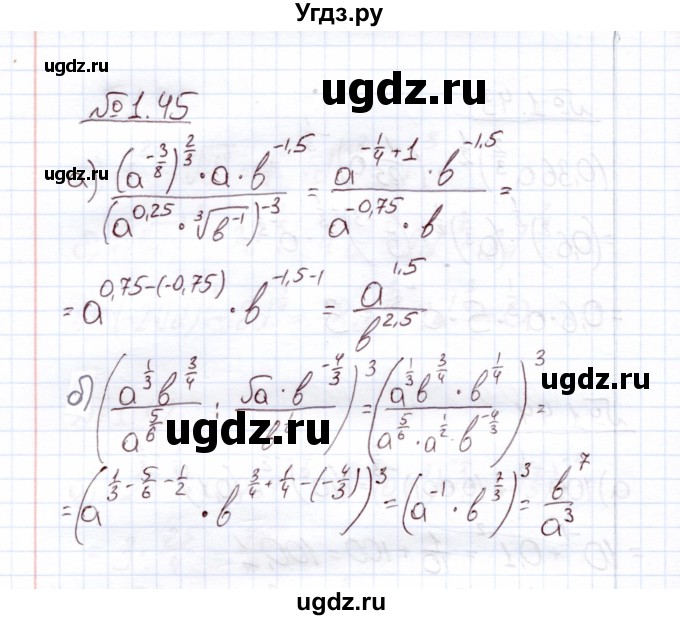 Угдз.ру
ugdz.ru ugdz.ru
ugdz.ru
№1.45
ugdz.ru ugdz.ru
а) ((a^(-3/8))^(2/3) · a · b^(-1,5)) / (a^(0,25) · ∛(b^(-1)))^(-3) = (a^(-1/4+1) · b^(-1,5)) / (a^(-0,75) · b) =
= a^(0,75-(-0,75)) · b^(-1,5-1) = a^(1,5) / b^(2,5)
б) ((a^(1/3) b^(3/4)) / a^(5/6) : (√a · b^(-4/3)) / )^3 = ((a^(1/3) b^(3/4) · b^(1/4)) / (a^(5/6) · a^(1/2) · b^(-4/3)))^3 =
ugdz.ru ugdz.ru
= (a^(1/3-5/6-1/2) · b^(3/4+1/4-(-4/3)))^3 = (a^(-1) · b^(7/3))^3 = b^7 / a^3
ugdz.ru ugdz.ru
ugdz.ru